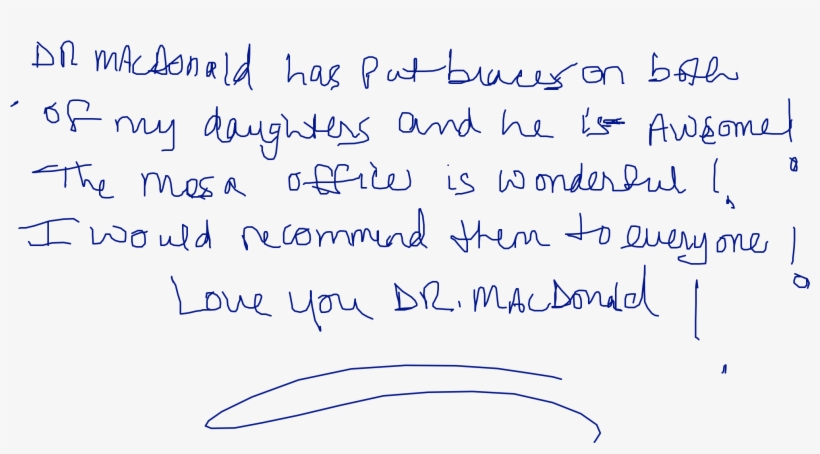 DR MACDonald has Put braces on both
of my daughters and he is Awesome!
The mesa office is wonderful!
I would recommend them to everyone!
Love you DR. MACDonald!